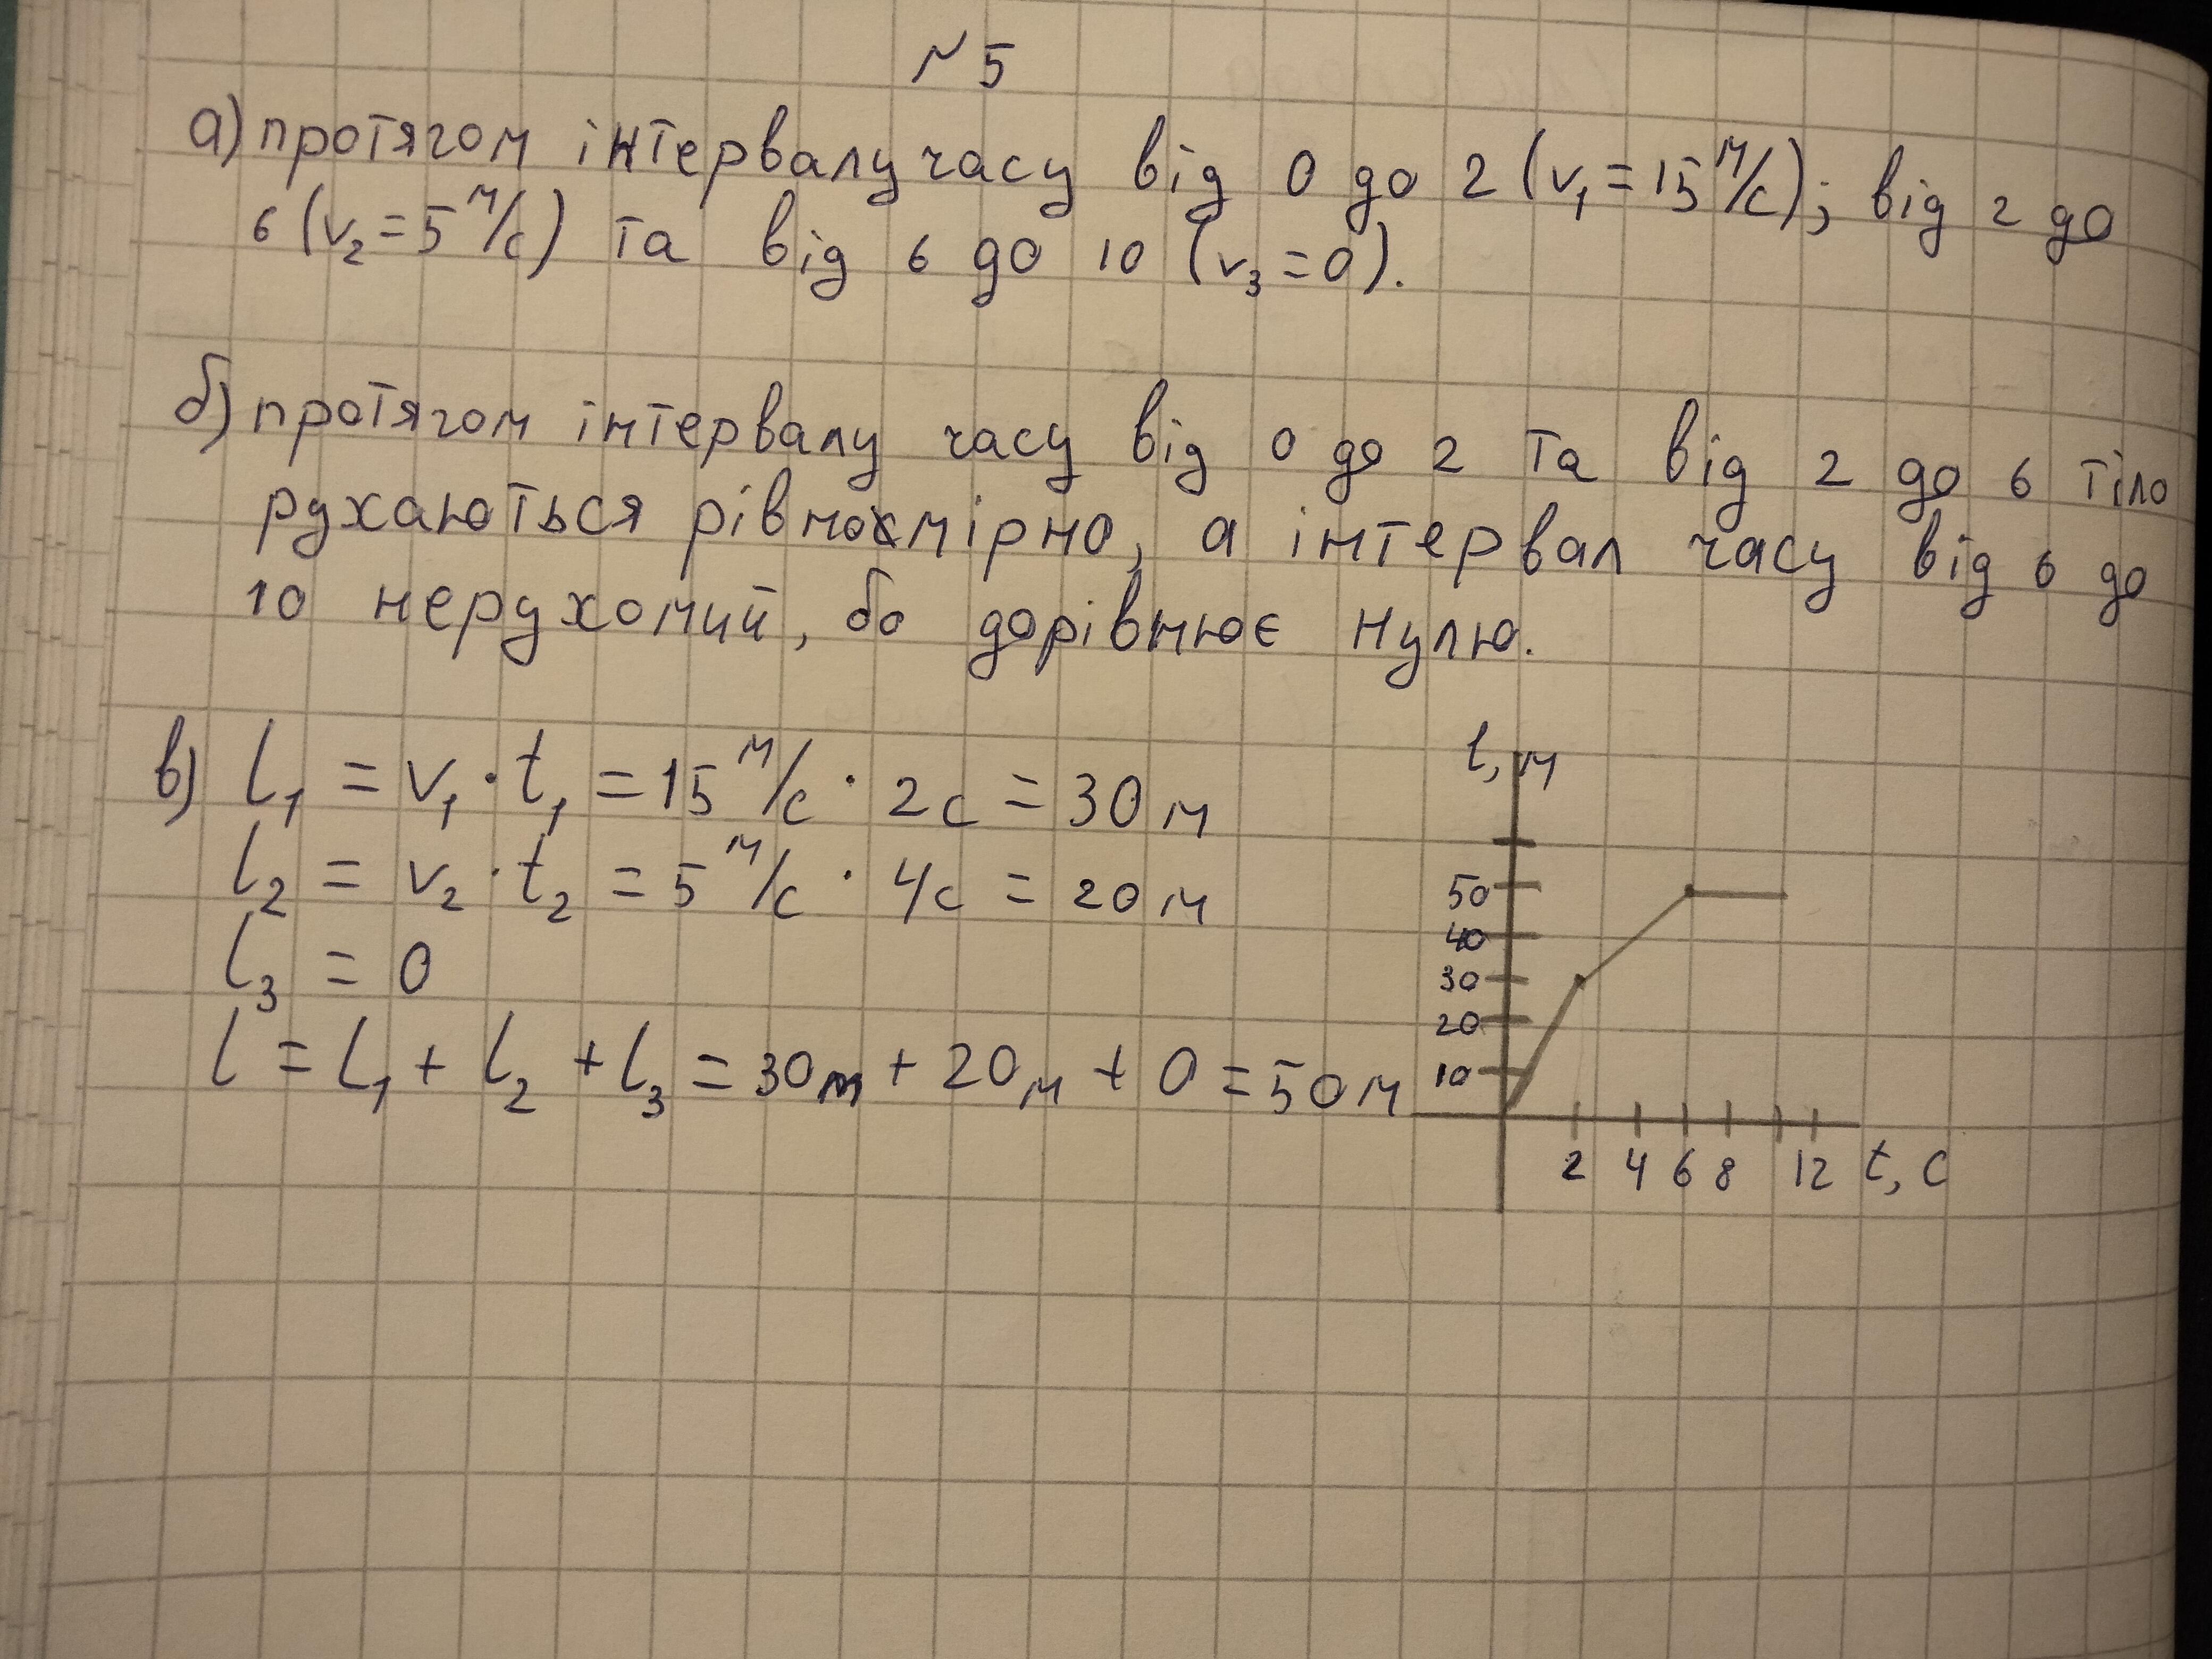 № 5
а) протягом інтервалу часу від 0 до 2 (v₁ = 15 м/с); від 2 до
6 (v₂ = 5 м/с) та від 6 до 10 (v₃ = 0).
б) протягом інтервалу часу від 0 до 2 та від 2 до 6 тіло
рухаються рівномірно, а інтервал часу від 6 до
10 нерухомий, бо дорівнює нулю.
в) l₁ = v₁ · t₁ = 15 м/с · 2с = 30 м
l₂ = v₂ · t₂ = 5 м/с · 4с = 20 м
l₃ = 0
l = l₁ + l₂ + l₃ = 30м + 20м + 0 = 50м
l, м
50
40
30
20
10
2 4 6 8 12 t, с